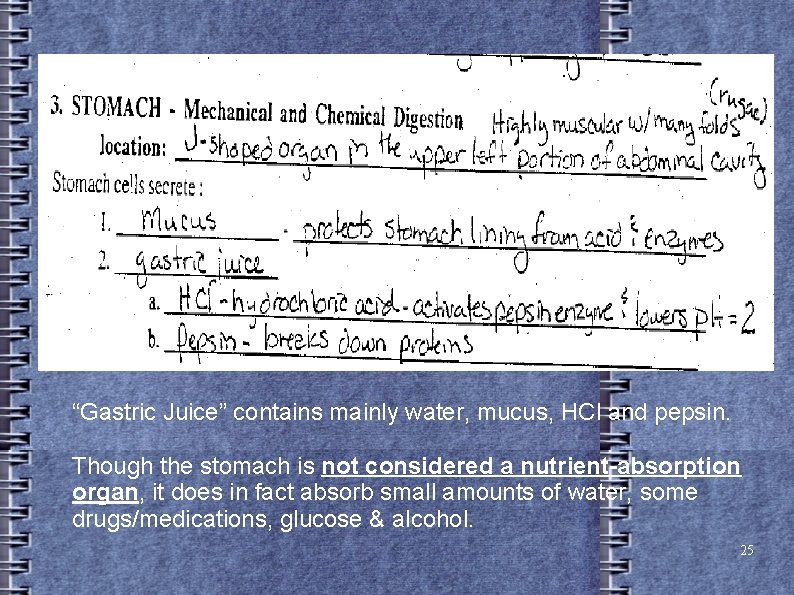 (rugae)
3. STOMACH - Mechanical and Chemical Digestion Highly muscular w/ many folds
location: J-shaped organ in the upper left portion of abdominal cavity
Stomach cells secrete :
1. Mucus - protects stomach lining from acid & enzymes
2. gastric juice
a. HCl - hydrochloric acid - activates pepsin enzyme & lowers pH = 2
b. Pepsin - breaks down proteins
“Gastric Juice” contains mainly water, mucus, HCl and pepsin.
Though the stomach is not considered a nutrient-absorption
organ, it does in fact absorb small amounts of water, some
drugs/medications, glucose & alcohol.
25